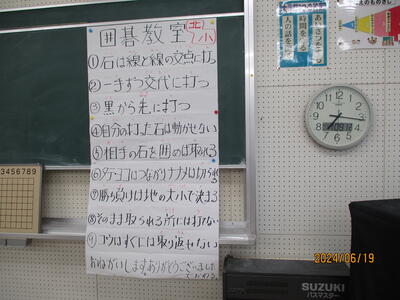 囲碁教室
①石は線と線の交点に打つ
②一手ずつ交代に打つ
③黒から先に打つ
④自分の打った石は動かせない
⑤相手の石を囲めば取られる
⑥タテ・ヨコはつながりナナメは切られる
⑦勝ち負けは地の大小で決まる
⑧そのまま取られる所には打てない
⑨コウはすぐには取り返せない
おねがいします。ありがとうございました
3456789
あいさつをする
時間を守る
人の話を
SUZUKI
バスマスター
2024/06/19